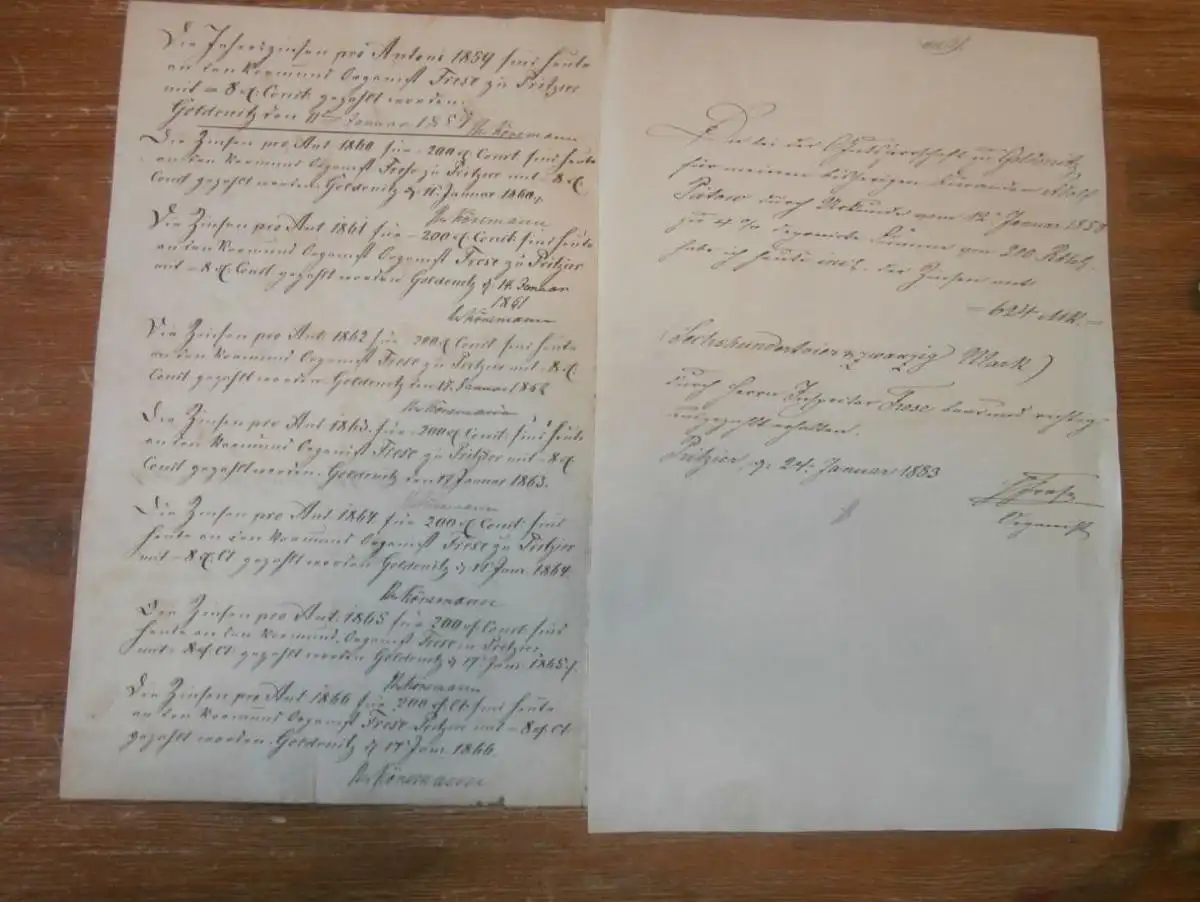 Die Jahreszinsen pro Antoni 1859 sind heute
an den Vormund Organist Frese zu Pritzier
mit 8 Court. gezahlt worden.
Goldenitz den 11 Januar 1859 Könemann
Die Zinsen pro Ant 1860 für 200 Court sind heute
an den Vormund Organist Frese zu Pritzier mit 8
Court gezahlt worden. Goldenitz d 16 Januar 1860.
Könemann
Die Zinsen pro Ant 1861 für 200 Court. sind heute
an den Vormund Organist Frese zu Pritzier
mit 8 Court gezahlt worden Goldenitz d 14. Januar
1861
Könemann
Die Zinsen pro Ant. 1862 für 200 Court sind heute
an den Vormund Organist Frese zu Pritzier mit 8
Court gezahlt worden. Goldenitz den 17. Januar 1862
Könemann
Die Zinsen pro Ant. 1863. für 200 Court. sind heute
an den Vormund Organist Frese zu Pritzier mit 8
Court gezahlt worden. Goldenitz den 17 Januar 1863.
Könemann
Die Zinsen pro Ant. 1864 für 200 Court. sind
heute an den Vormund Organist Frese zu Pritzier
mit 8 Ct gezahlt worden Goldenitz d Janr. 1864.
Könemann
Die Zinsen pro Ant. 1865 für 200 Court. sind
heute an den Vormund, Organist Frese in Pritzier,
mit 8 Ct. gezahlt worden Goldenitz d 17 Janr. 1865
Könemann
Die Zinsen pro Ant 1866 für 200 Ct. sind heute
an den Vormund Organist Frese Pritzier mit 8 Ct.
gezahlt worden. Goldenitz d 17 Janr. 1866.
Könemann
Die bei der Gutsherrschaft zu Goldenitz
für meinen bisherigen Curanden Adolf
Pätow durch Urkunde vom 12. Januar 1858
zu 4 % deponirte Summe von 200
habe ich heute incl. der Zinsen mit
– 624 MK. –
(Sechshundertvier u. zwanzig) Mark)
durch Herrn Inspector Frese baar und richtig
ausgezahlt erhalten.
Pritzier, d. 24. Januar 1883
Frese
Organist